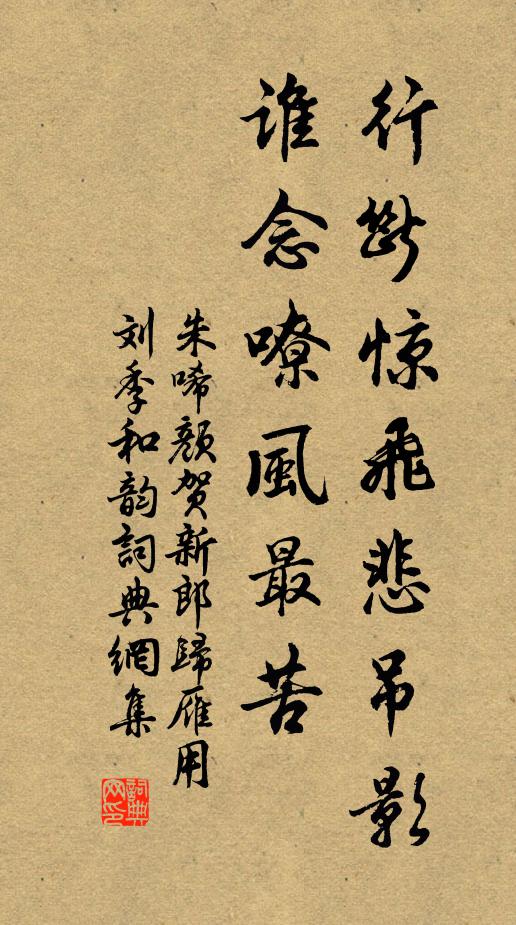 行断惊飞悲吊影
谁念嘹風最苦
朱唏颜贺新郎歸雁用
刘季和韵詞典網集
詞典网印